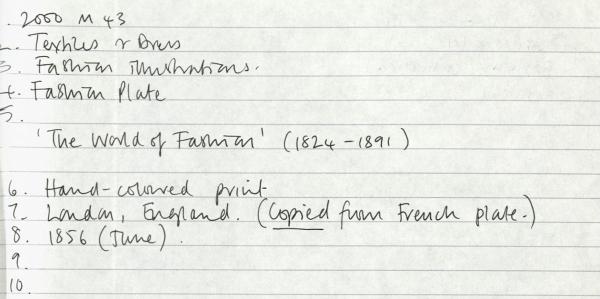 . 2000 M 43
2. Textiles & Dress
3. Fashion illustrations.
4. Fashion Plate
5.
'The World of Fashion' (1824-1891)
6. Hand-coloured print
7. London, England. (Copied from French plate.)
8. 1856 (June).
9.
10.